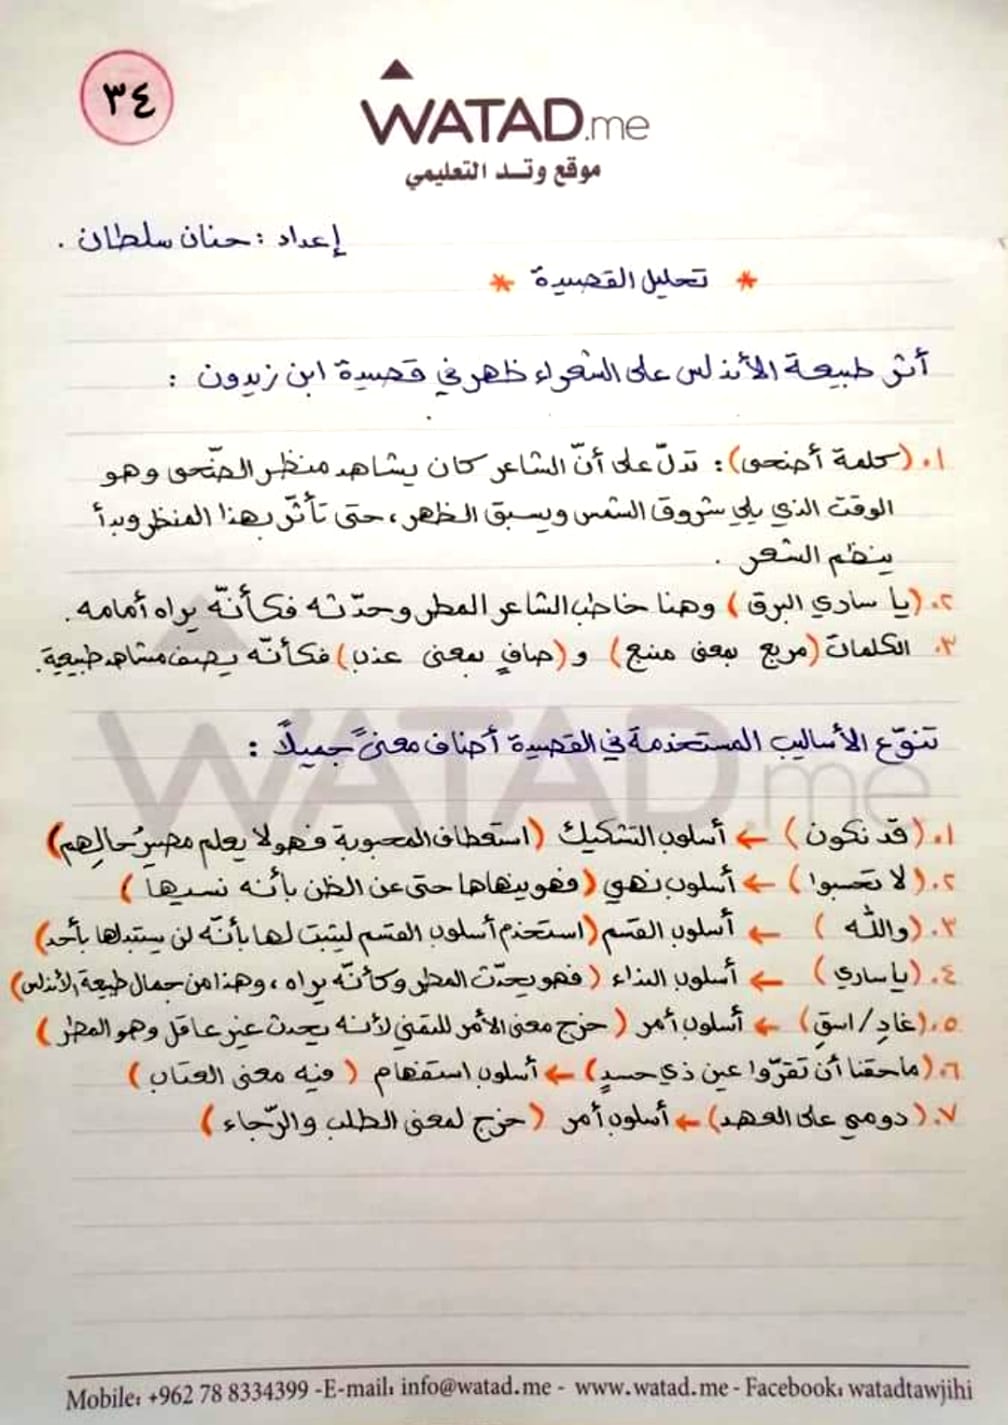 ٣٤
WATAD.me
موقع وتد التعليمي
إعداد : حنان سلطان .
* تحليل القصيدة *
أثر طبيعة الأندلس على الشعراء ظهر في قصيدة ابن زيدون :
١. (كلمة أضحى) : تدلّ على أنّ الشاعر كان يشاهد منظر الضّحى وهو
الوقت الذي يلي شروق الشمس ويسبق الظهر ، حتى تأثّر بهذا المنظر وبدأ
ينظم الشعر .
٢. (يا ساري البرق) وهنا خاطب الشاعر المطر وحدّثه فكأنّه يراه أمامه .
٣. الكلمات (مربع بمعنى منبع) و (صافٍ بمعنى عذب) فكأنّه يصف مشاهد طبيعية .
تنوّع الأساليب المستخدمة في القصيدة أضاف معنىً جميلاً :
١. (قد نكون) ← أسلوب التشكيك (استعطاف المحبوبة فهو لا يعلم مصيرُ حالِهم)
٢. (لا تحسبوا) ← أسلوب نهي (فهو ينهاها حتى عن الظن بأنه نسيها)
٣. (والله) ← أسلوب القسم (استخدم أسلوب القسم ليثبت لها بأنّه لن يستبدلها بأحد)
٤. (يا ساري) ← أسلوب النداء (فهو يحدّث المطر وكأنّه يراه ، وهذا من جمال طبيعة الأندلس)
٥. (غادِ/اسقِ) ← أسلوب أمر (خرج معنى الأمر للتمني لأنه يحدث غير عاقل وهو المطر)
٦. (ما حقنا أن تقرّوا عين ذي حسدٍ) ← أسلوب استفهام (فيه معنى العتاب)
٧. (دومي على العهد) ← أسلوب أمر (خرج لمعنى الطلب والرّجاء)
Mobile: +962 78 8334399 -E-mail: info@watad.me - www.watad.me - Facebook: watadtawjihi